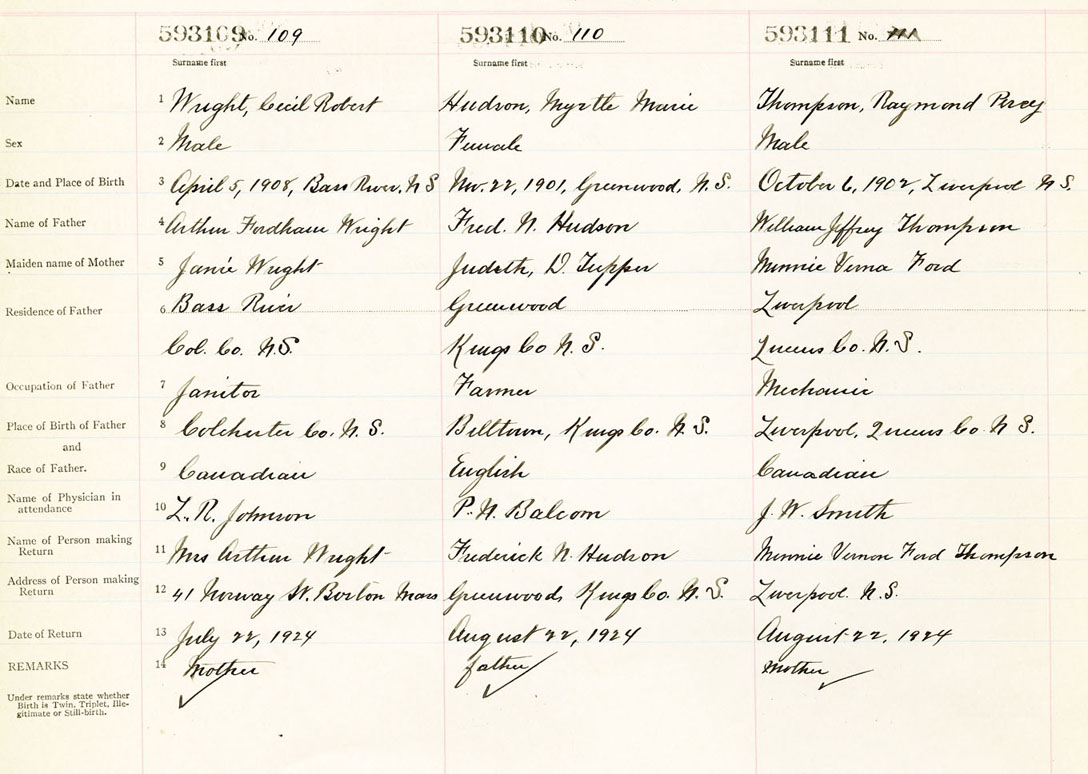 593109 No. 109 593110 No. 110 593111 No.
Surname first Surname first Surname first
Name 1 Wright, Cecil Robert Hudson, Myrtle Marie Thompson, Raymond Percy
Sex 2 Male Female Male
Date and Place of Birth 3 April 5, 1908, Bass River, N S Nov. 22, 1901, Greenwood, N.S. October 6, 1902, Liverpool N S.
Name of Father 4 Arthur Fordham Wright Fred. N. Hudson William Jeffrey Thompson
Maiden name of Mother 5 Janie Wright Judeth, D. Tupper Minnie Verna Ford
Residence of Father 6 Bass River Greenwood Liverpool
Col. Co. N.S. Kings Co N. S. Queens Co. N. S.
Occupation of Father 7 Janitor Farmer Mechanic
Place of Birth of Father 8 Colchester Co. N. S. Billtown, Kings Co. N. S. Liverpool, Queens Co. N S.
and
Race of Father. 9 Canadian English Canadian
Name of Physician in
attendance 10 L. R. Johnson P. N. Balcom J. W. Smith
Name of Person making
Return 11 Mrs Arthur Wright Frederick N. Hudson Minnie Vernon Ford Thompson
Address of Person making
Return 12 41 Norway St. Boston Mass Greenwood, Kings Co. N. S. Liverpool. N.S.
Date of Return 13 July 22, 1924 August 22, 1924 August 22, 1924
REMARKS 14 Mother father Mother
Under remarks state whether
Birth is Twin, Triplet, Ille-
gitimate or Still-birth.